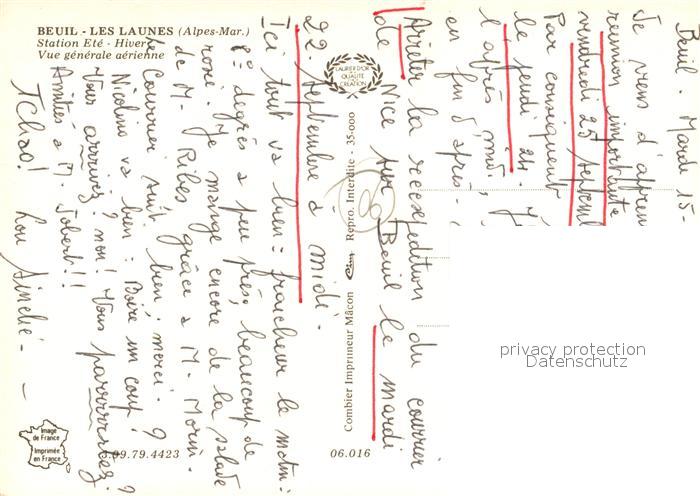 BEUIL - LES LAUNES (Alpes-Mar.)
Station Eté - Hiver
Vue générale aérienne
LAURIER D'OR
DE LA
QUALITÉ
DE
CRÉATION
Beuil. Mardi 15-
Je viens d'appren
réunion importante
vendredi 25 septem
Par conséquent
le jeudi 24. J
l'après midi
en fin d'après-
Arrêter la réexpédition du courrier
de Nice sur Beuil le mardi
22 septembre à midi.
Ici tout va bien : fraîcheur le matin :
8° degrés à peu près, beaucoup de
rosée. Je mange encore de la salade
de M. Ribes grâce à M. Morin.
Le Courrier suit bien, merci.
Nicolas va bien : Boire un coup ?
Vous arrivez ? non ! Vous parrrrrtez ?
Amitiés à M. Jobert !!
Tchao !
Combier Imprimeur Mâcon Cim Repro. Interdite - 35-000
privacy protection
Datenschutz
Image
de France
Imprimée
en France
3.99.79.4423
06.016